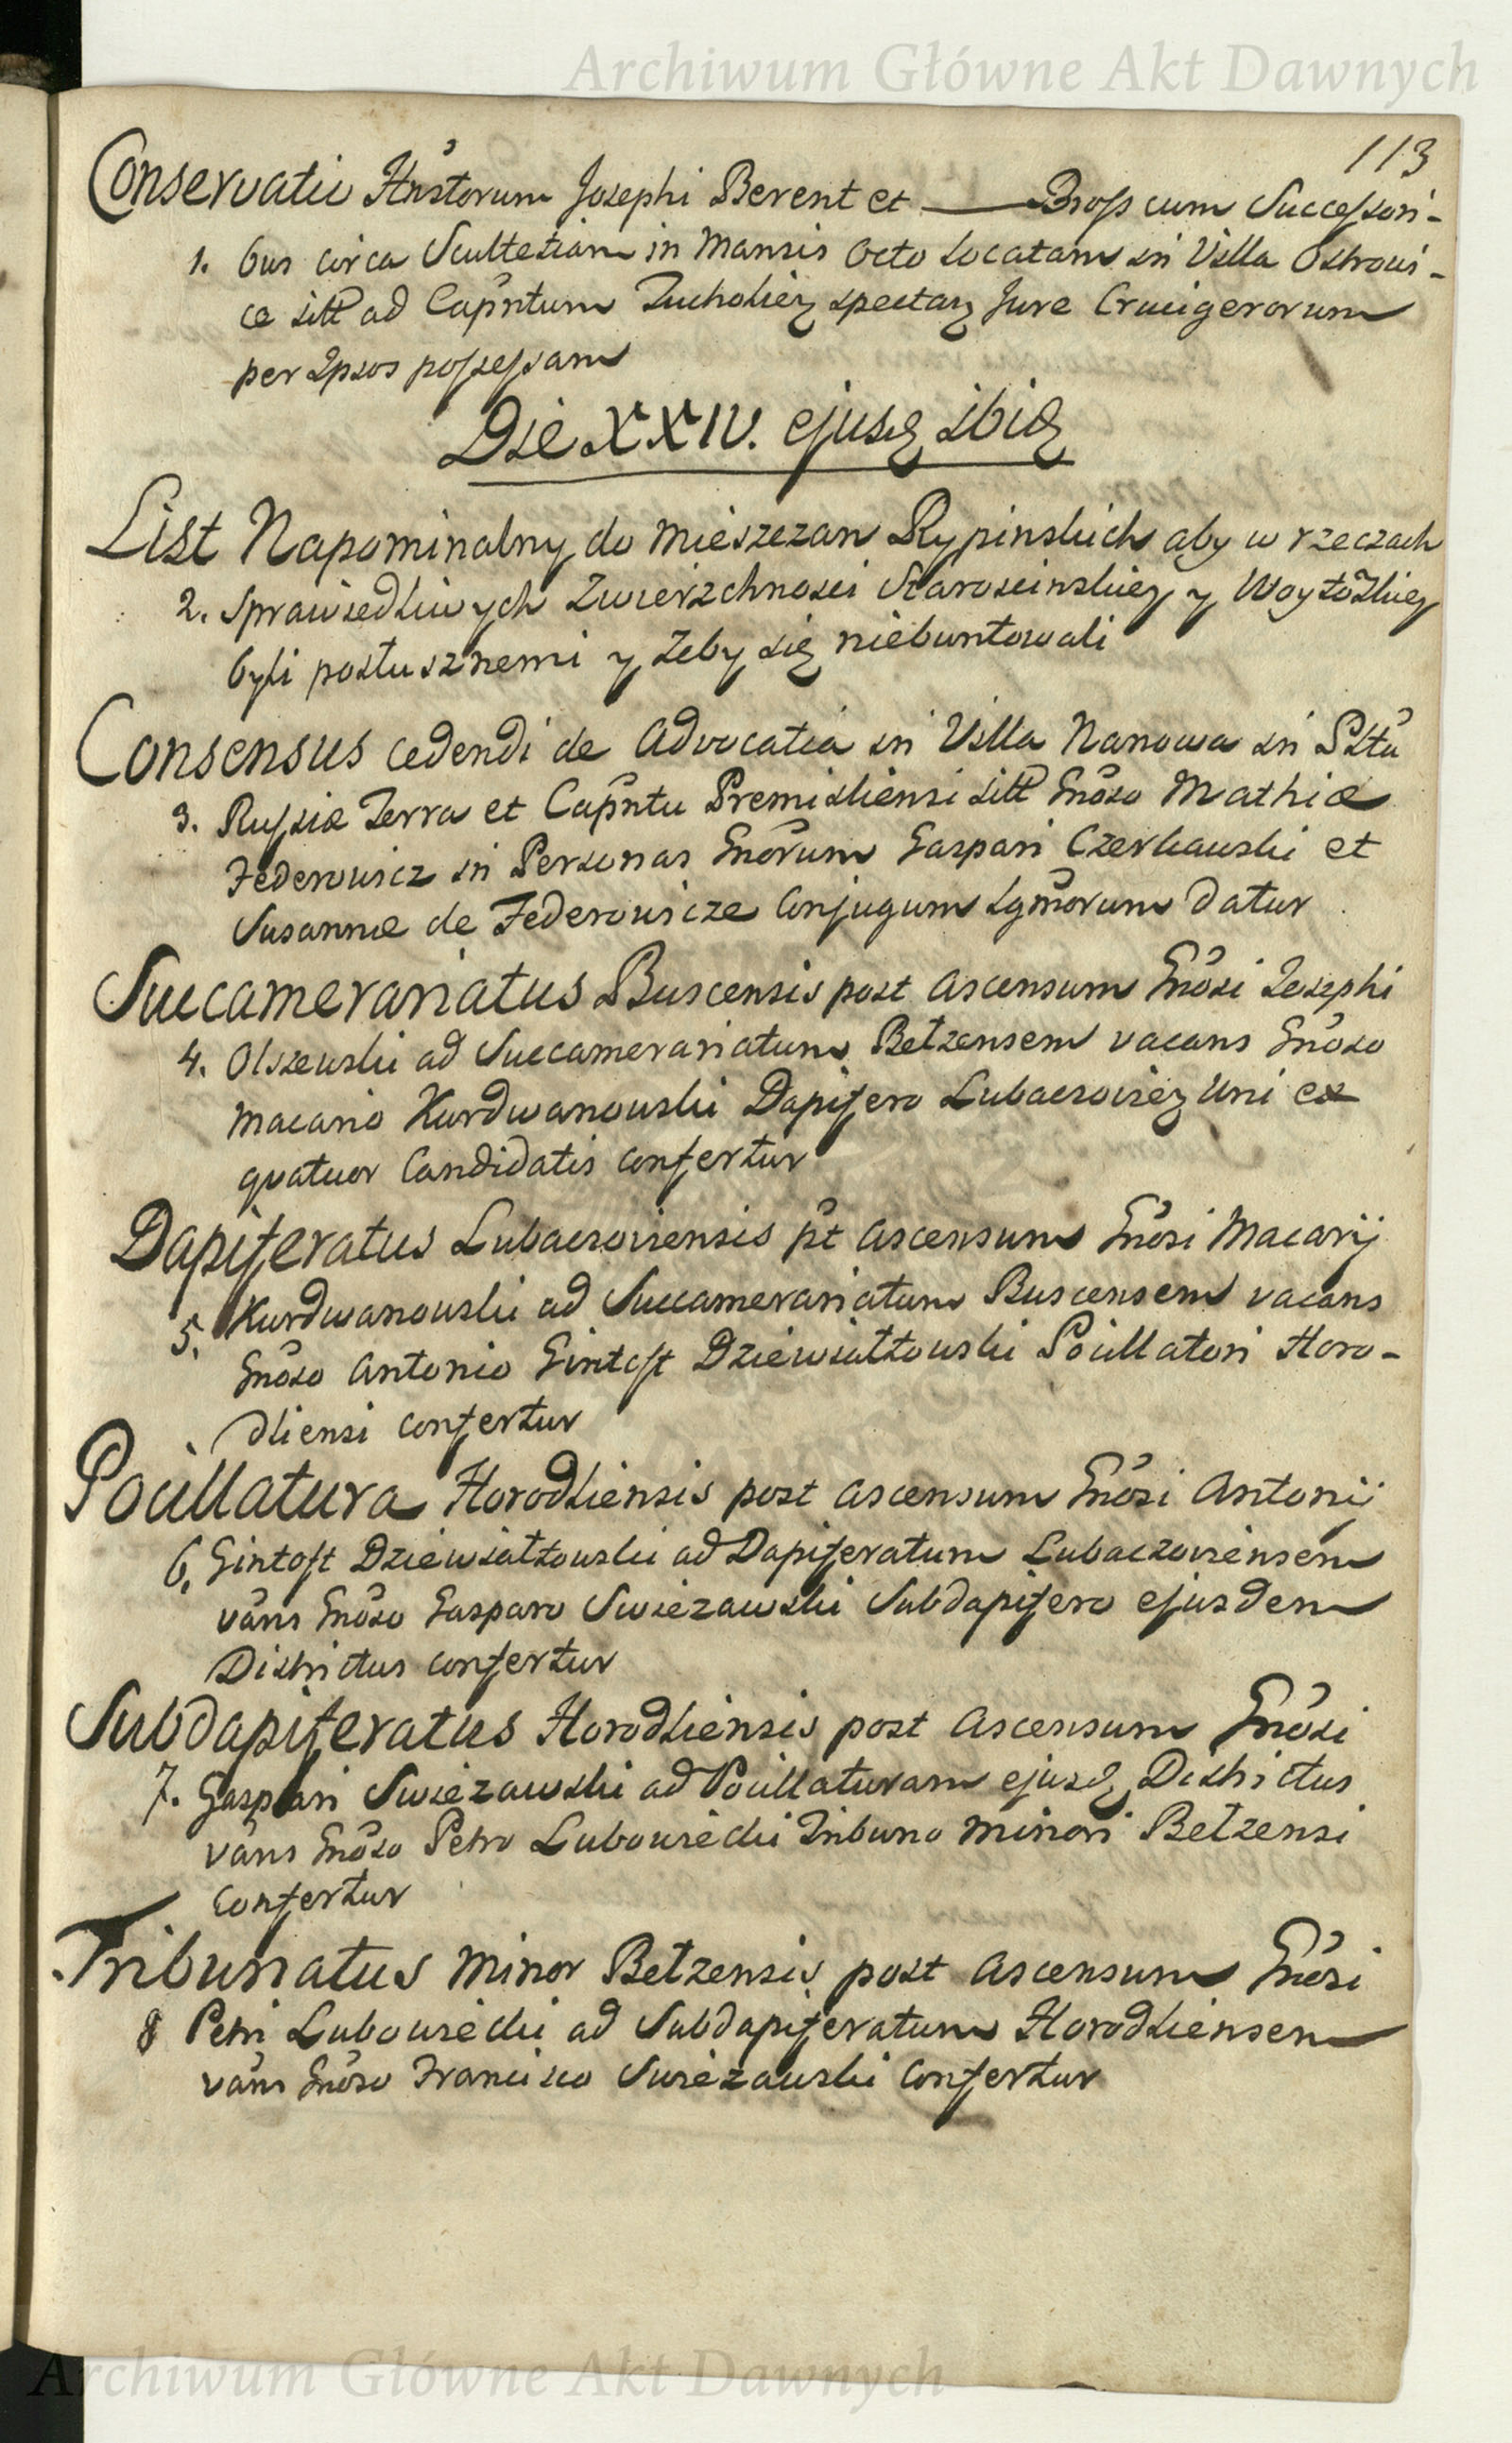 Archiwum Główne Akt Dawnych
113
Conservatio Hnstorum Josephi Berent et —— Bross cum Successori-
1. bus circa Scultetiam in Mansis Octo locatam in Villa Ostrowi-
ce sitt ad Capntum Tucholien spectan Jure Crucigerorum
per Ipsos possessam
Die XXIV. ejusd ibid
List Napominalny do Mieszczan Rypinskich aby w rzeczach
2. sprawiedliwych Zwierzchnosci Staroscinskiey y Woytowskiey
byli posłusznemi y żeby się niebuntowali
Consensus cedendi de Advocatia in Villa Nanowa in Pltu
3. Russiæ Terra et Capntu Premisliensi sitt Gnoso Mathiæ
Federowicz in Personas Gnorum Gaspari Czerkawski et
Susannæ de Federowicze Conjugum Lgmorum datur
Succamerariatus Buscensis post ascensum Gnosi Josephi
4. Olszewski ad Succamerariatum Bełzensem vacans Gnoso
Macario Kurdwanowski Dapifero Lubaczovien Uni ex
quatuor Candidatis confertur
Dapiferatus Lubaczoviensis pt ascensum Gnosi Macarij
5. Kurdwanowski ad Succamerariatum Buscensem vacans
Gnoso Antonio Gintoft Dziewiałtowski Pocillatori Horo-
dliensi confertur
Pocillatura Horodliensis post ascensum Gnosi Antonij
6. Gintoft Dziewiałtowski ad Dapiferatum Lubaczoviensem
vans Gnoso Gasparo Swiezawski Subdapifero ejusdem
Districtus confertur
Subdapiferatus Horodliensis post ascensum Gnosi
7. Gaspari Swiezawski ad Pocillaturam ejusd Districtus
vans Gnoso Petro Lubowiecki Tribuno Minori Bełzensi
confertur
Tribunatus Minor Bełzensis post ascensum Gnosi
8 Petri Lubowiecki ad Subdapiferatum Horodliensem
vans Gnoso Francisco Swiezawski Confertur
Archiwum Główne Akt Dawnych